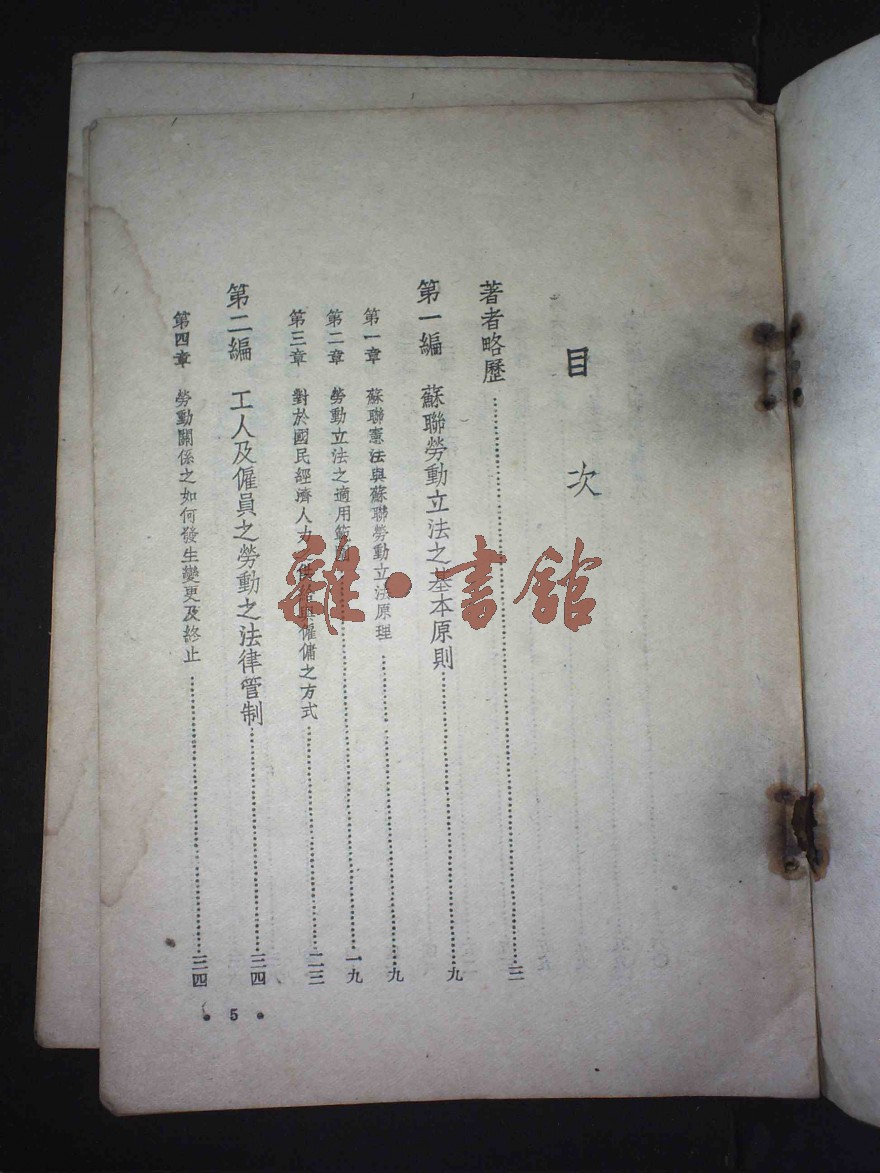 目 次
著者略歷……三
第一編 蘇聯勞動立法之基本原則……九
第一章 蘇聯憲法與蘇聯勞動立法原理……九
第二章 勞動立法之適用範圍……一九
第三章 對於國民經濟人力供給與僱傭之方式……二三
第二編 工人及僱員之勞動之法律管制……三四
第四章 勞動關係之如何發生變更及終止……三四
• 5 •
雜·書館